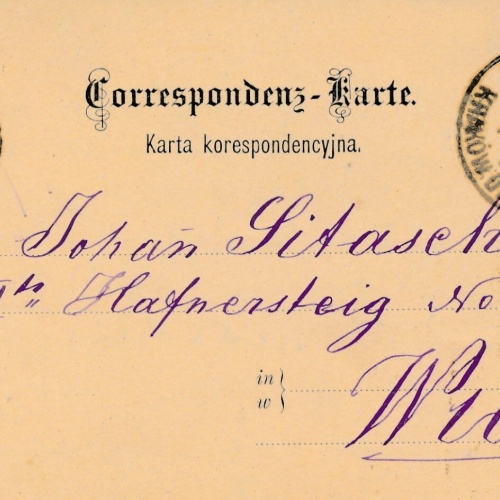 Correspondenz-Karte.
Karta korespondencyjna.
KRAKÓW
Johan Sitasch
Hafnersteig No
in
w